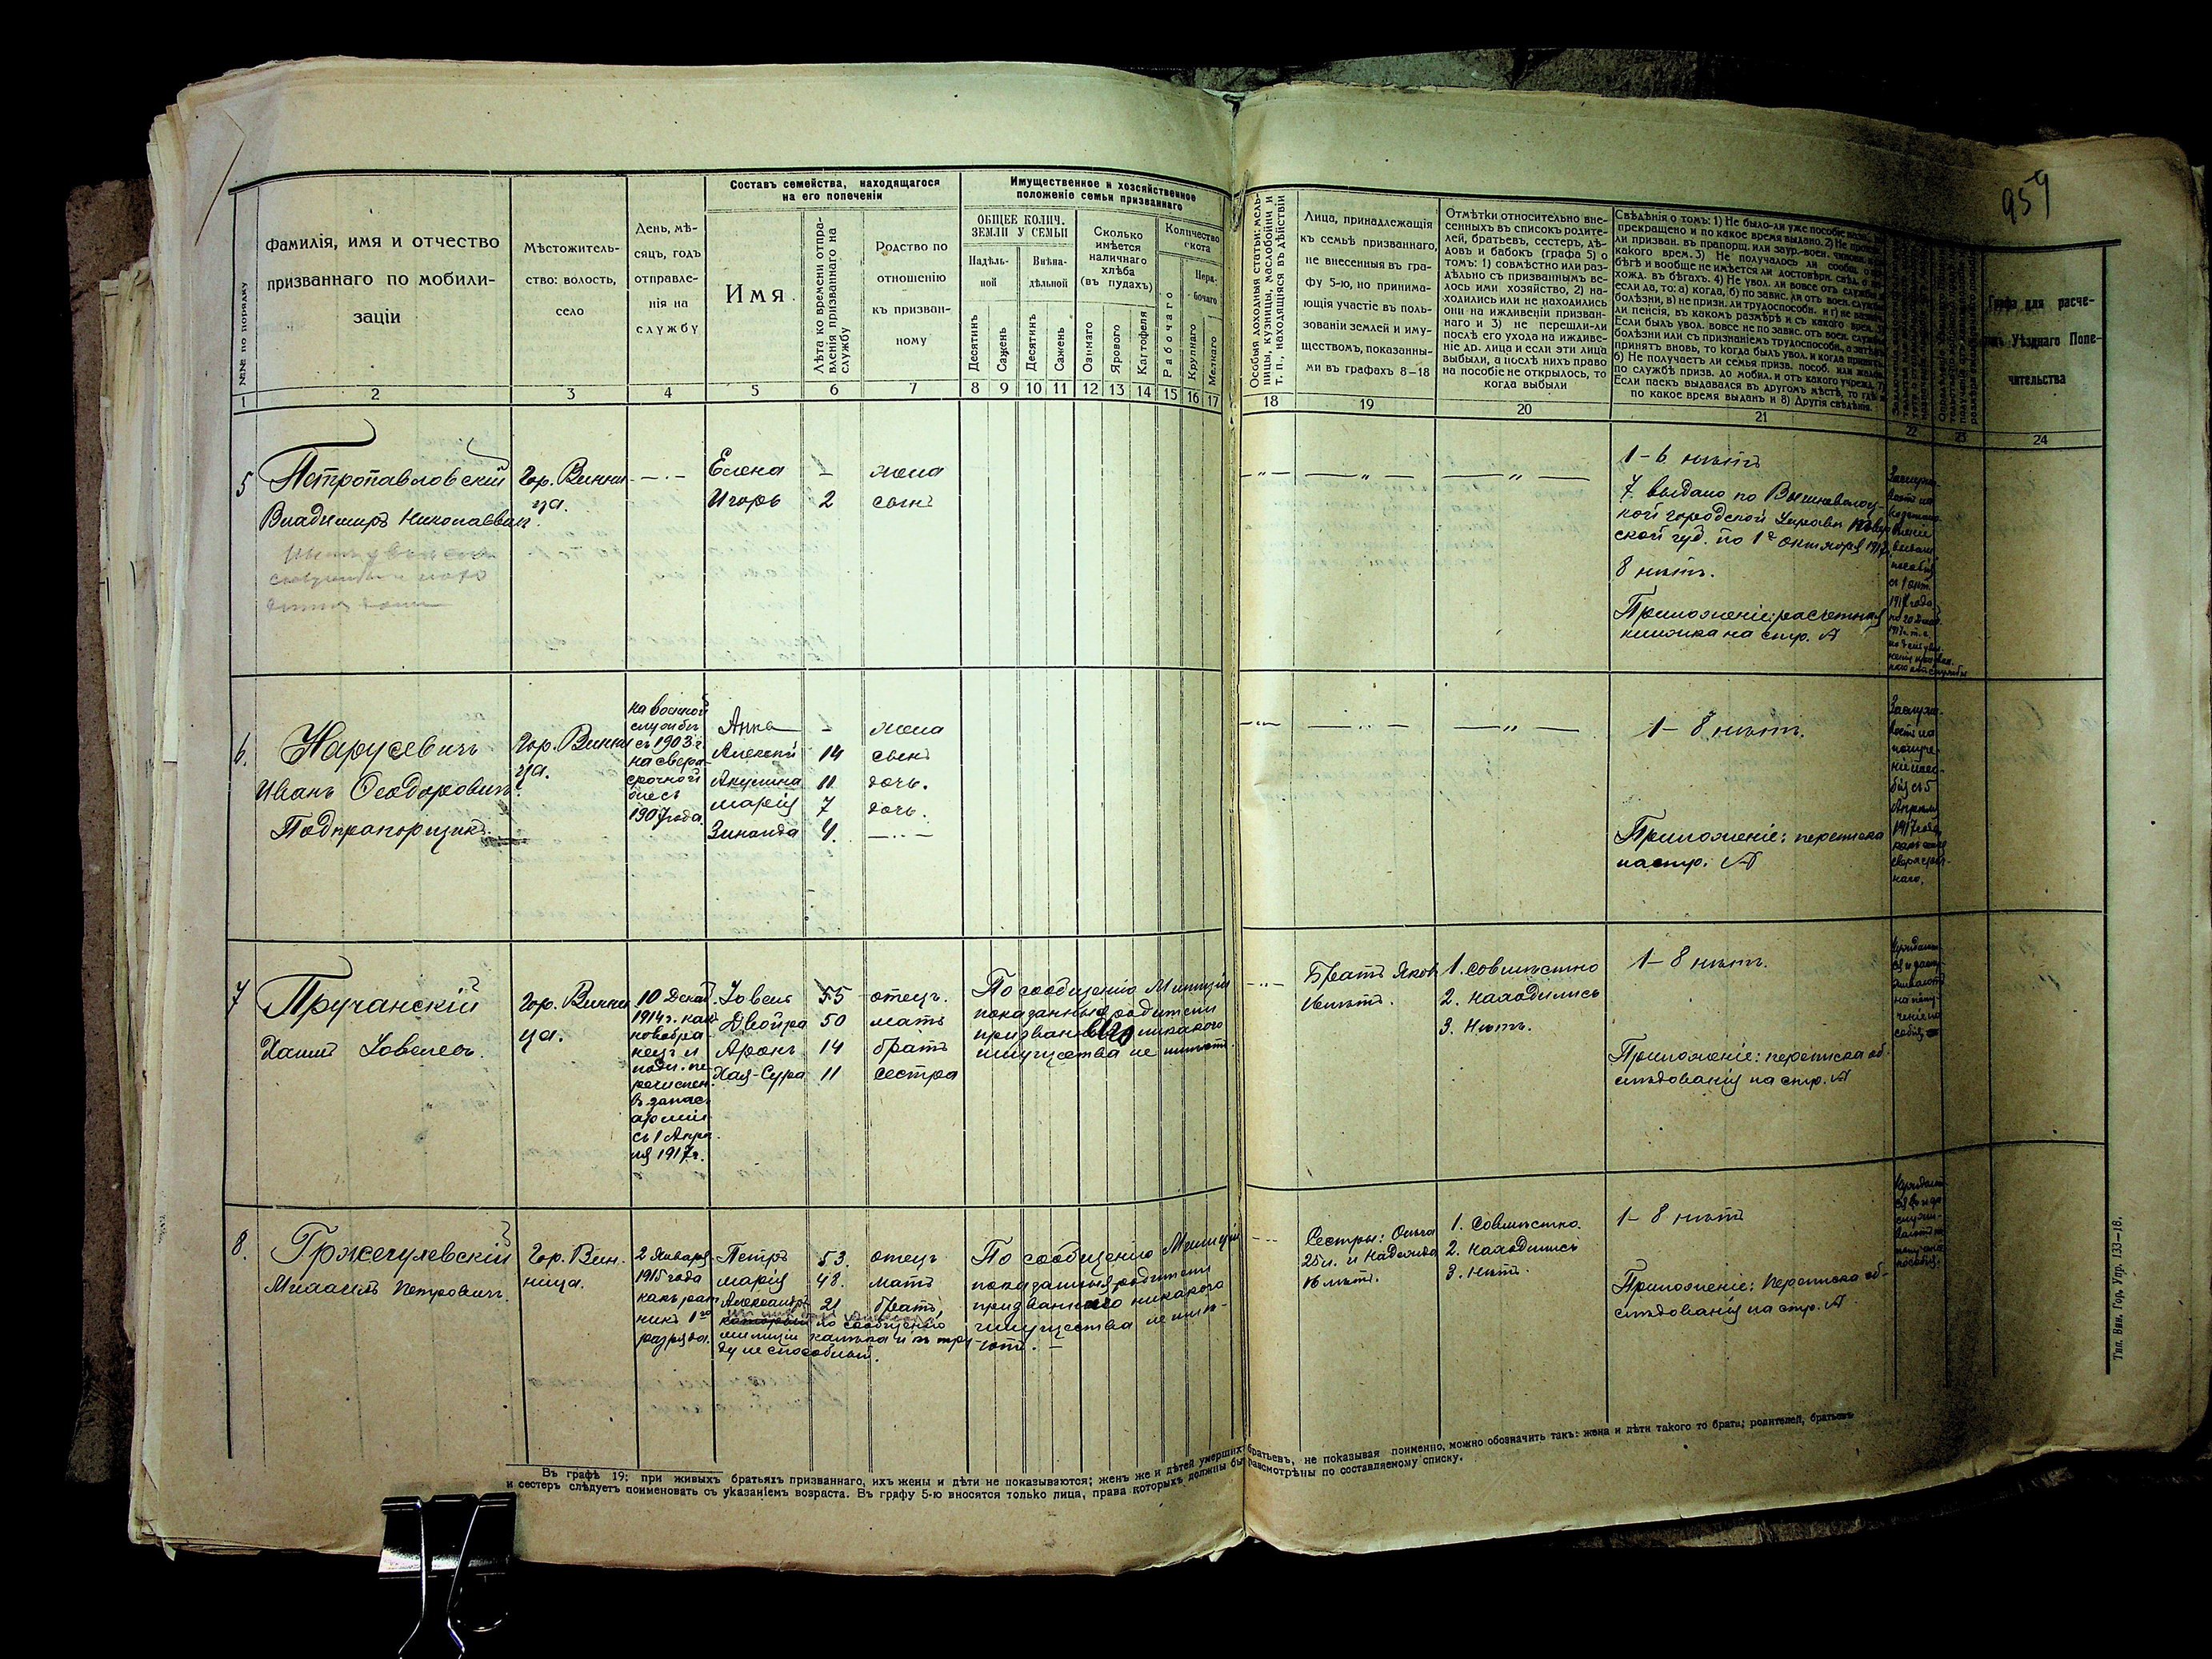 959
№№ по порядку
фамилія, имя и отчество
призваннаго по мобили-
заціи
Мѣстожитель-
ство: волость,
село
День, мѣ-
сяцъ, годъ
отправле-
нія на
службу
Составъ семейства, находящагося
на его попеченіи
Имя
Лѣта ко времени отпра-
вленія призваннаго на
службу
Родство по
отношенію
къ призван-
ному
Имущественное и хозяйственное
положеніе семьи призваннаго
ОБЩЕЕ КОЛИЧ.
ЗЕМЛИ У СЕМЬИ
Надѣль-
ной
Внѣна-
дѣльной
Десятинъ
Сажень
Десятинъ
Сажень
Сколько
имѣется
наличнаго
хлѣба
(въ пудахъ)
Озимаго
Ярового
Картофеля
Количество
скота
Рабочаго
Нера-
бочаго
Крупнаго
Мелкаго
Особыя доходныя статьи: мель-
ницы, кузницы, маслобойни и
т. п., находящіяся въ дѣйствіи
Лица, принадлежащія
къ семьѣ призваннаго,
не внесенныя въ гра-
фу 5-ю, но принима-
ющія участіе въ поль-
зованіи землей и иму-
ществомъ, показанны-
ми въ графахъ 8—18
Отмѣтки относительно вне-
сенныхъ въ списокъ родите-
лей, братьевъ, сестеръ, дѣ-
довъ и бабокъ (графа 5) о
томъ: 1) совмѣстно или раз-
дѣльно съ призваннымъ ве-
лось ими хозяйство, 2) на-
ходились или не находились
они на иждивеніи призван-
наго и 3) не перешли-ли
послѣ его ухода на иждиве-
ніе др. лица и если эти лица
выбыли, а послѣ нихъ право
на пособіе не открылось, то
когда выбыли
Свѣдѣнія о томъ: 1) Не было-ли уже пособіе
прекращено и по какое время выдано. 2) Не
ли призван. въ прапорщ. или заур.-воен.
какого врем. 3) Не получалось ли сообщ. о
бѣгѣ и вообще не имѣется ли достовѣрн. свѣд. о
хожд. въ бѣгахъ. 4) Не увол. ли вовсе отъ службы
если да, то: а) когда, б) по завис. ли отъ воен. службы
болѣзни, в) не призн. ли трудоспособн. и г) не
ли пенсія, въ какомъ размѣрѣ и съ какого врем. 5)
Если былъ увол. вовсе не по завис. отъ воен. службы
болѣзни или съ признаніемъ трудоспособн., а затѣмъ
принятъ вновь, то когда былъ увол. и когда принятъ.
6) Не получаетъ ли семья призв. пособ. или
по службѣ призв. до мобил. и отъ какого учрежд. 7)
Если паекъ выдавался въ другомъ мѣстѣ, то гдѣ и
по какое время выданъ и 8) Другія свѣдѣнія.
Графа для расче-
товъ Уѣзднаго Попе-
чительства
1 2 3 4 5 6 7 8 9 10 11 12 13 14 15 16 17 18 19 20 21 22 23 24
5
Петропавловскій
Владимиръ Николаевич
Гор. Винни-
ца.
— . —
Елена — жена
Игорь 2 сынъ
— „ — — „ — — „ —
1—6 нѣтъ
7 выдано по Вышневолоц-
кой городской Управы Твер
ской губ. по 1е Октября 1917
8 нѣтъ.
Приложеніе: расчетная
книжка на стр. А
6.
Нарусевичъ
Иванъ Ѳеодоровичъ
Подпрапорщикъ.
Гор. Винни
ца.
на военной
службѣ
съ 1903 г.
на сверх
срочной
онъ съ
1907 года.
Анна — жена
Алексѣй 14 сынъ
Акулина 11 дочь.
Марія 7 дочь.
Зинаида 4. — .. —
— „ — — .. — — „ —
1—8 нѣтъ.
Приложеніе: переписка
на стр. А
7
Пручанскій
Хаимъ Іовелев.
Гор. Винни
ца.
10 Декаб.
1914 г. какъ
новобра-
нецъ и
подл. пе-
речислен.
въ запас
арміи
съ 1 Апрѣ
ля 1917 г.
Іовель 55 отецъ.
Двойра 50 мать
Аронъ 14 братъ
Хая-Сура 11 сестра
По сообщенію Милиціи
показанныя родители
призваннаго никакого
имущества не имѣютъ.
Братъ Яков
1. совмѣстно
2. находились
3. Нѣтъ.
1—8 нѣтъ.
Приложеніе: переписка об-
слѣдованія на стр. А
8.
Гржегулевскій
Михаилъ Петровичъ.
Гор. Вин-
ница.
2 Января
1915 года
какъ рат
никъ 1го
разряда.
Петръ 53. отецъ
Марія 48. мать
Александръ 21 братъ,
по сообщенію
милиціи калѣка и къ тру-
ду не способный.
По сообщенію Милиціи
показанныя родители
призваннаго никакого
имущества не имѣ-
ютъ. —
Сестры: Ольга
25 л. и Надежда
16 лѣтъ.
1. Совмѣстно.
2. Находились
3. Нѣтъ.
1—8 нѣтъ
Приложеніе: Переписка об-
слѣдованія на стр. А
Въ графѣ 19: при живыхъ братьяхъ призваннаго, ихъ жены и дѣти не показываются; женъ же и дѣтей умершихъ братьевъ, не показывая поименно, можно обозначить такъ: жена и дѣти такого то брата; родителей, братьевъ
и сестеръ слѣдуетъ поименовать съ указаніемъ возраста. Въ графу 5-ю вносятся только лица, права которыхъ должны быть разсмотрѣны по составляемому списку.
Тип. Вин. Гор. Упр. 133—18.